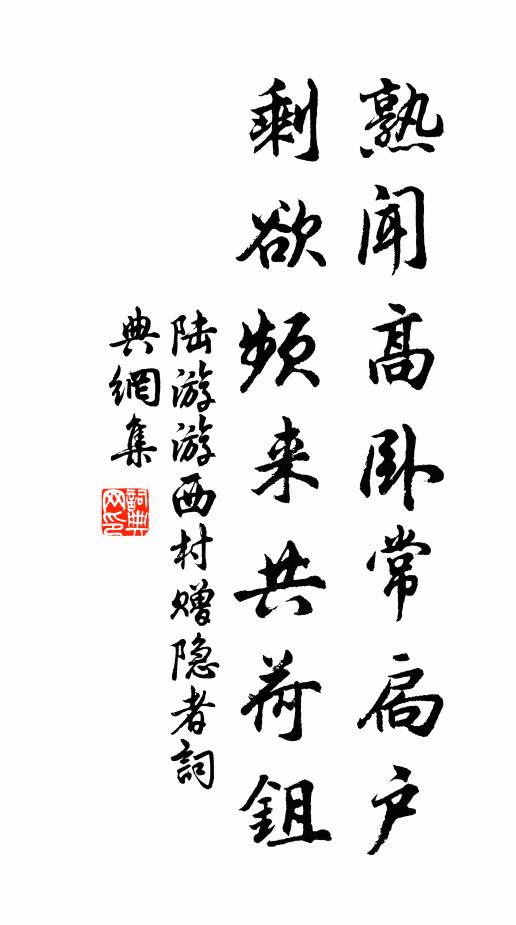 熟闻高卧常扃户
剩欲频来共荷鉏
陆游游西村赠隐者词
典網集
詞典网印